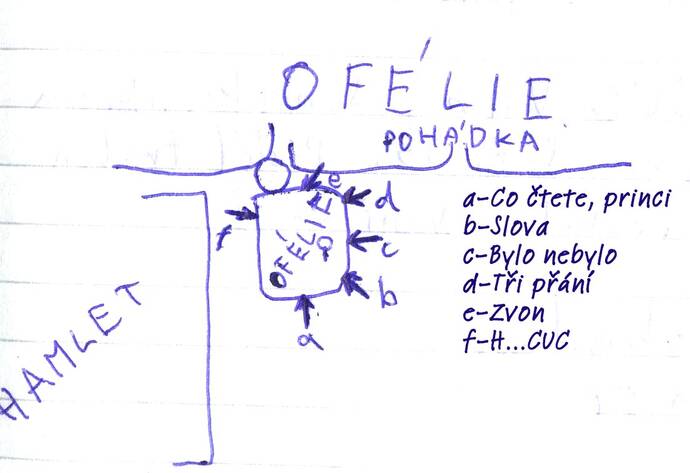 OFÉLIE
POHÁDKA
e
d
a-Co čtete, princi
b-Slova
c-Bylo nebylo
d-Tři přání
e-Zvon
f-H...CUC
OFÉLIE
f
c
b
a
HAMLET